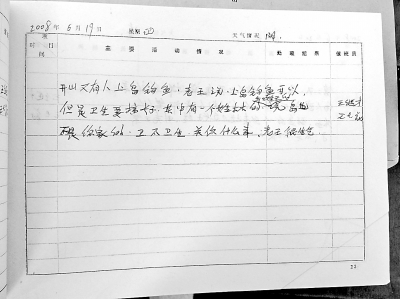 2008年6月19日 星期四 天气情况 晴
项目 时间 主要活动情况 处理结果 值班员
开山又有人上岛钓鱼,老王说,上岛钓鱼可以,
但是卫生要搞好,其中有一个姓 的 岛也
不是你家的,卫不卫生,关你什么事,老王很生气
王继才
王仕花
22